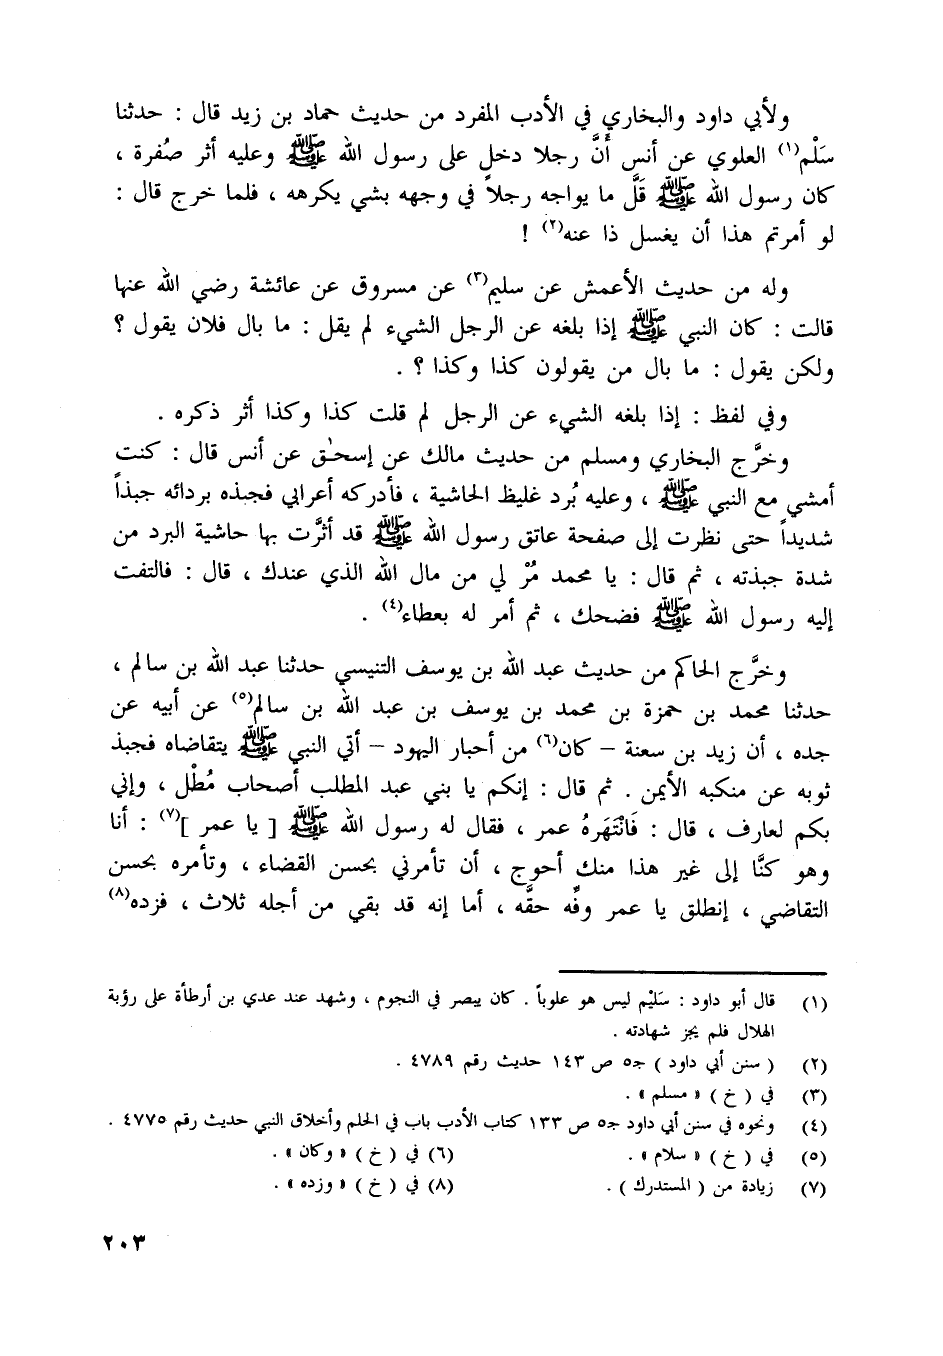 ولأبي داود والبخاري في الأدب المفرد من حديث حماد بن زيد قال : حدثنا
سَلْم(١) العلوي عن أنس أَنَّ رجلا دخل على رسول الله ﷺ وعليه أثر صُفرة ،
كان رسول الله ﷺ قَلَّ ما يواجه رجلاً في وجهه بشي يكرهه ، فلما خرج قال :
لو أمرتم هذا أن يغسل ذا عنه(٢) !
وله من حديث الأعمش عن سليم(٣) عن مسروق عن عائشة رضي الله عنها
قالت : كان النبي ﷺ إذا بلغه عن الرجل الشيء لم يقل : ما بال فلان يقول ؟
ولكن يقول : ما بال من يقولون كذا وكذا ؟ .
وفي لفظ : إذا بلغه الشيء عن الرجل لم قلت كذا وكذا أثر ذكره .
وخرَّج البخاري ومسلم من حديث مالك عن إسحٰق عن أنس قال : كنت
أمشي مع النبي ﷺ ، وعليه بُرد غليظ الحاشية ، فأدركه أعرابي فجبذه بردائه جبذاً
شديداً حتى نظرت إلى صفحة عاتق رسول الله ﷺ قد أثَّرت بها حاشية البرد من
شدة جبذته ، ثم قال : يا محمد مُرْ لي من مال الله الذي عندك ، قال : فالتفت
إليه رسول الله ﷺ فضحك ، ثم أمر له بعطاء(٤) .
وخرَّج الحاكم من حديث عبد الله بن يوسف التنيسي حدثنا عبد الله بن سالم ،
حدثنا محمد بن حمزة بن محمد بن يوسف بن عبد الله بن سالم(٥) عن أبيه عن
جده ، أن زيد بن سعنة – كان(٦) من أحبار اليهود – أتي النبي ﷺ يتقاضاه فجبذ
ثوبه عن منكبه الأيمن . ثم قال : إنكم يا بني عبد المطلب أصحاب مُطْل ، وإني
بكم لعارف ، قال : فَانْتَهَرهُ عمر ، فقال له رسول الله ﷺ [ يا عمر ](٧) : أنا
وهو كنَّا إلى غير هذا منك أحوج ، أن تأمرني بحسن القضاء ، وتأمره بحسن
التقاضي ، إنطلق يا عمر وفِّه حقَّه ، أما إنه قد بقي من أجله ثلاث ، فزده(٨)
(١) قال أبو داود : سَلِيْم ليس هو علوياً . كان يبصر في النجوم ، وشهد عند عدي بن أرطأة على رؤية
الهلال فلم يجز شهادته .
(٢) ( سنن أبي داود ) جـ٥ ص ١٤٣ حديث رقم ٤٧٨٩ .
(٣) في ( خ ) « مسلم » .
(٤) ونحوه في سنن أبي داود جـ٥ ص ١٣٣ كتاب الأدب باب في الحلم وأخلاق النبي حديث رقم ٤٧٧٥ .
(٥) في ( خ ) « سلام » . (٦) في ( خ ) « وكان » .
(٧) زيادة من ( المستدرك ) . (٨) في ( خ ) « وزده » .
٢٠٣